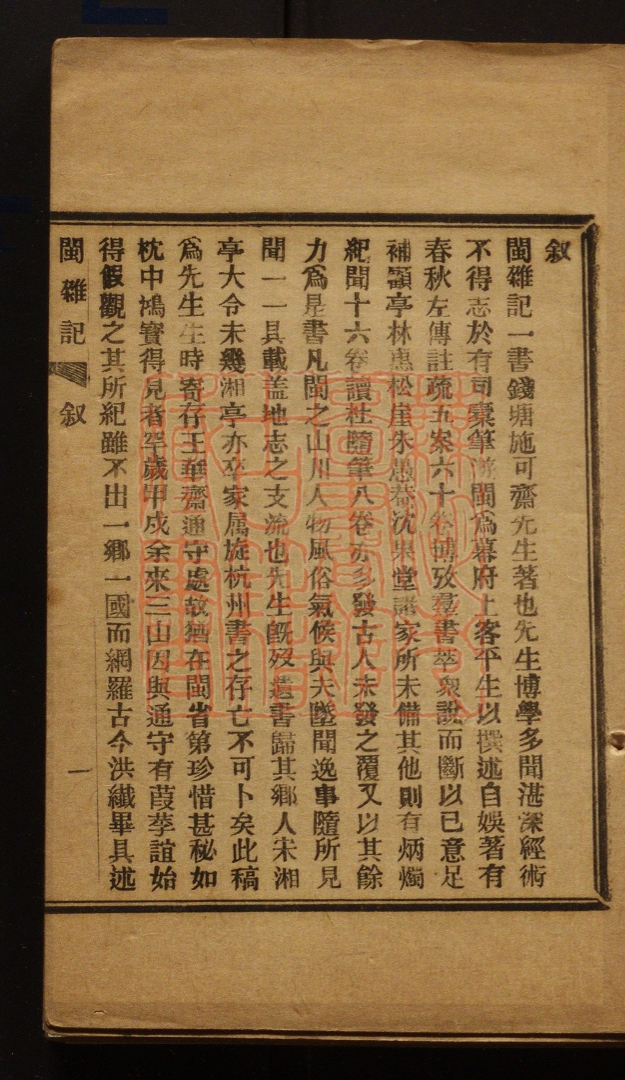 叙
閩雜記一書錢塘施可齋先生著也先生博學多聞湛深經術
不得志於有司橐筆游閩爲幕府上客平生以撰述自娛著有
春秋左傳註疏五案六十卷博攷羣書萃衆說而斷以已意足
補顧亭林惠松崖朱愚菴沈果堂諸家所未備其他則有炳燭
紀聞十六卷讀杜隨筆八卷亦多發古人未發之覆又以其餘
力爲是書凡閩之山川人物風俗氣候與夫墜聞逸事隨所見
聞一一具載盖地志之支流也先生旣歿遺書歸其鄉人宋湘
亭大令未幾湘亭亦卒家属旋杭州書之存亡不可卜矣此稿
爲先生生時寄存王華齋通守處故猶在閩省第珍惜甚秘如
枕中鴻寶得見者罕歲甲戍余來三山因與通守有葭莩誼始
得假觀之其所紀雖不出一鄉一國而網羅古今洪纖畢具述
閩雜記 叙 一